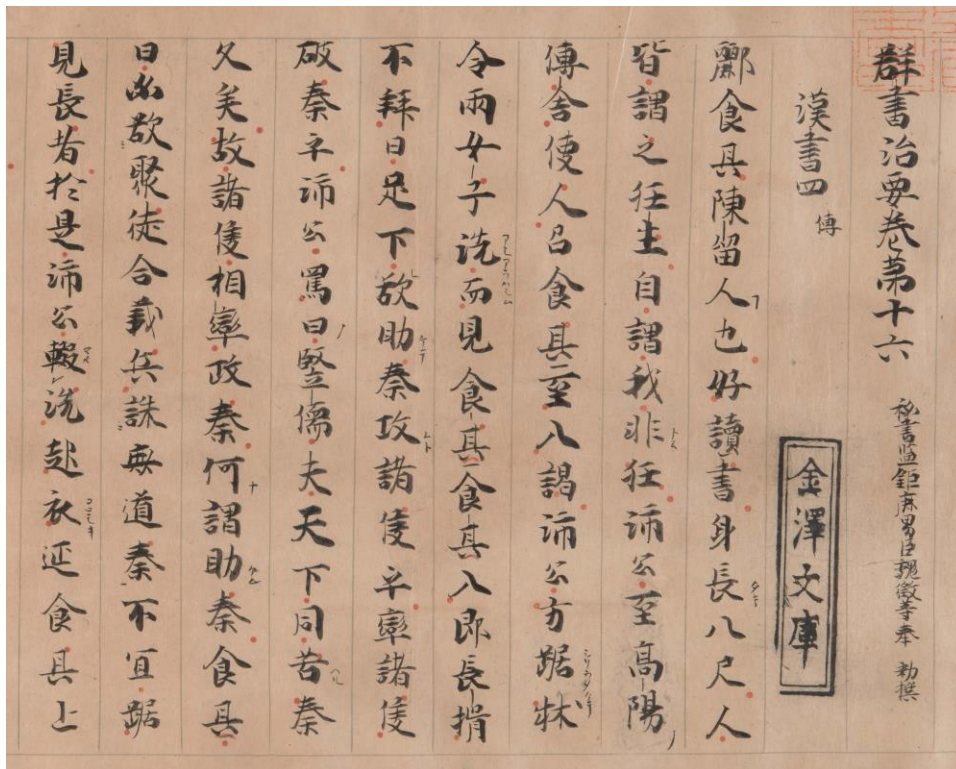 群書治要卷第十六 秘書監鉅鹿男臣魏徵等奉 勅撰
漢書四 傳
金澤文庫
酈食其陳留人也好讀書身長八尺人
皆謂之狂生自謂我非狂沛公至高陽
傳舍使人召食其〻至入謁沛公方踞牀
令兩女子洗而見食其〻食其入即長揖
不拜曰足下欲助秦攻諸侯乎率諸侯
破秦乎沛公罵曰豎儒夫天下同苦秦
久矣故諸侯相率攻秦何謂助秦食其
曰必欲聚徒合義兵誅無道秦不宜踞
見長者於是沛公輟洗起衣延食其上